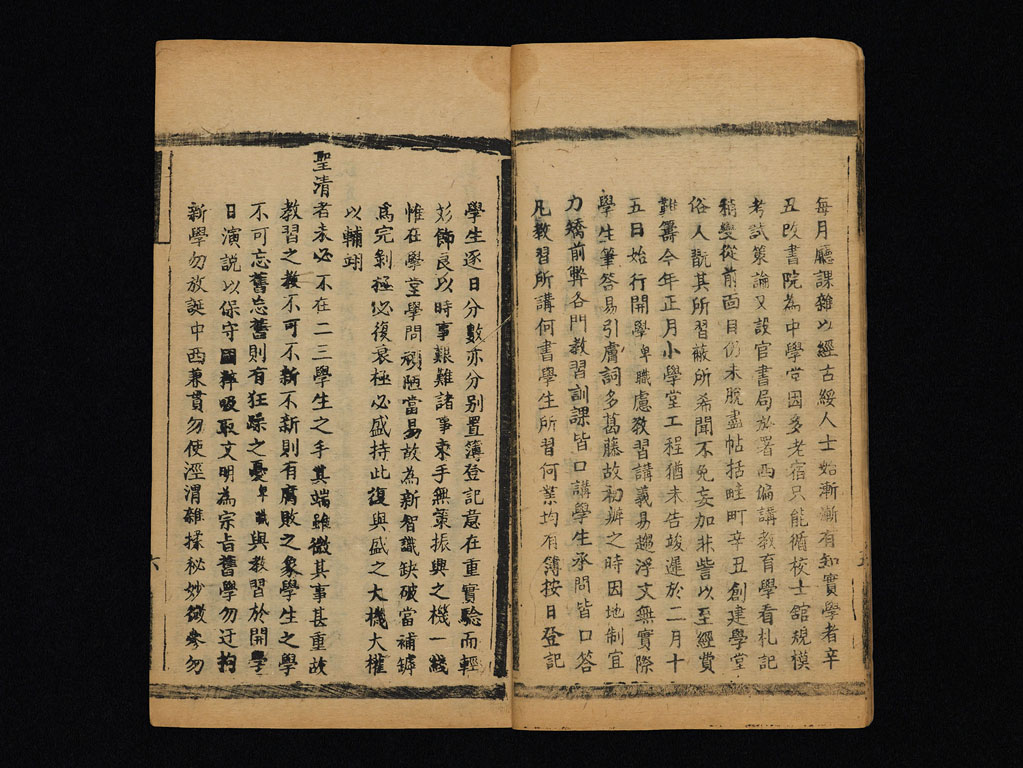 每月廳課雜以經古綏人士始漸漸有知實學者辛
丑改書院為中學堂因多老宿只能循校士舘規模
考試策論又設官書局於署西偏講教育學看札記
稍變從前面目仍未脫盡帖括畦町辛丑創建學堂
俗人翫其所習蔽所希聞不免妄加非訾以至經費
難籌今年正月小學堂工程猶未告竣遲於二月十
五日始行開學卑職慮教習講義易趨浮文無實際
學生筆答易引膚詞多葛藤故初辦之時因地制宜
力矯前弊各門教習訓課皆口講學生承問皆口答
凡教習所講何書學生所習何業均有簿按日登記
學生逐日分數亦分别置簿登記意在重實驗而輕
彣飾良以時事艱難諸事束手無策振興之機一綫
惟在學堂學問剜陋當易故為新智識缺破當補罅
為完剝極必復衰極必盛持此復與盛之大機大權
以輔翊
聖清者未必不在二三學生之手其端雖微其事甚重故
教習之教不可不新不新則有腐敗之象學生之學
不可忘舊忘舊則有狂躁之憂卑職與教習於開學
日演說以保守國粹吸取文明為宗旨舊學勿迂拘
新學勿放誕中西兼貫勿使涇渭雜揉秘妙微參勿
五
六